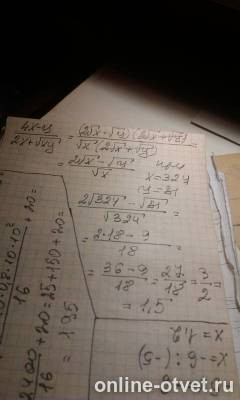 4x-y / 2x+√xy = (2√x+√y)(2√x+√y) / √x(2√x+√y) =
= 2√x-√y / √x при
x=324
y=81
2√324-√81 / √324 =
= 2·18-9 / 18 =
= 36-9 / 18 = 27 / 18 = 3 / 2 =
= 1,5
16 + 20 =
2400 / 16 + 20 = 25+150+20 =
= 195
x = 1,2
x = -6 : (-5)
online-otvet.ru